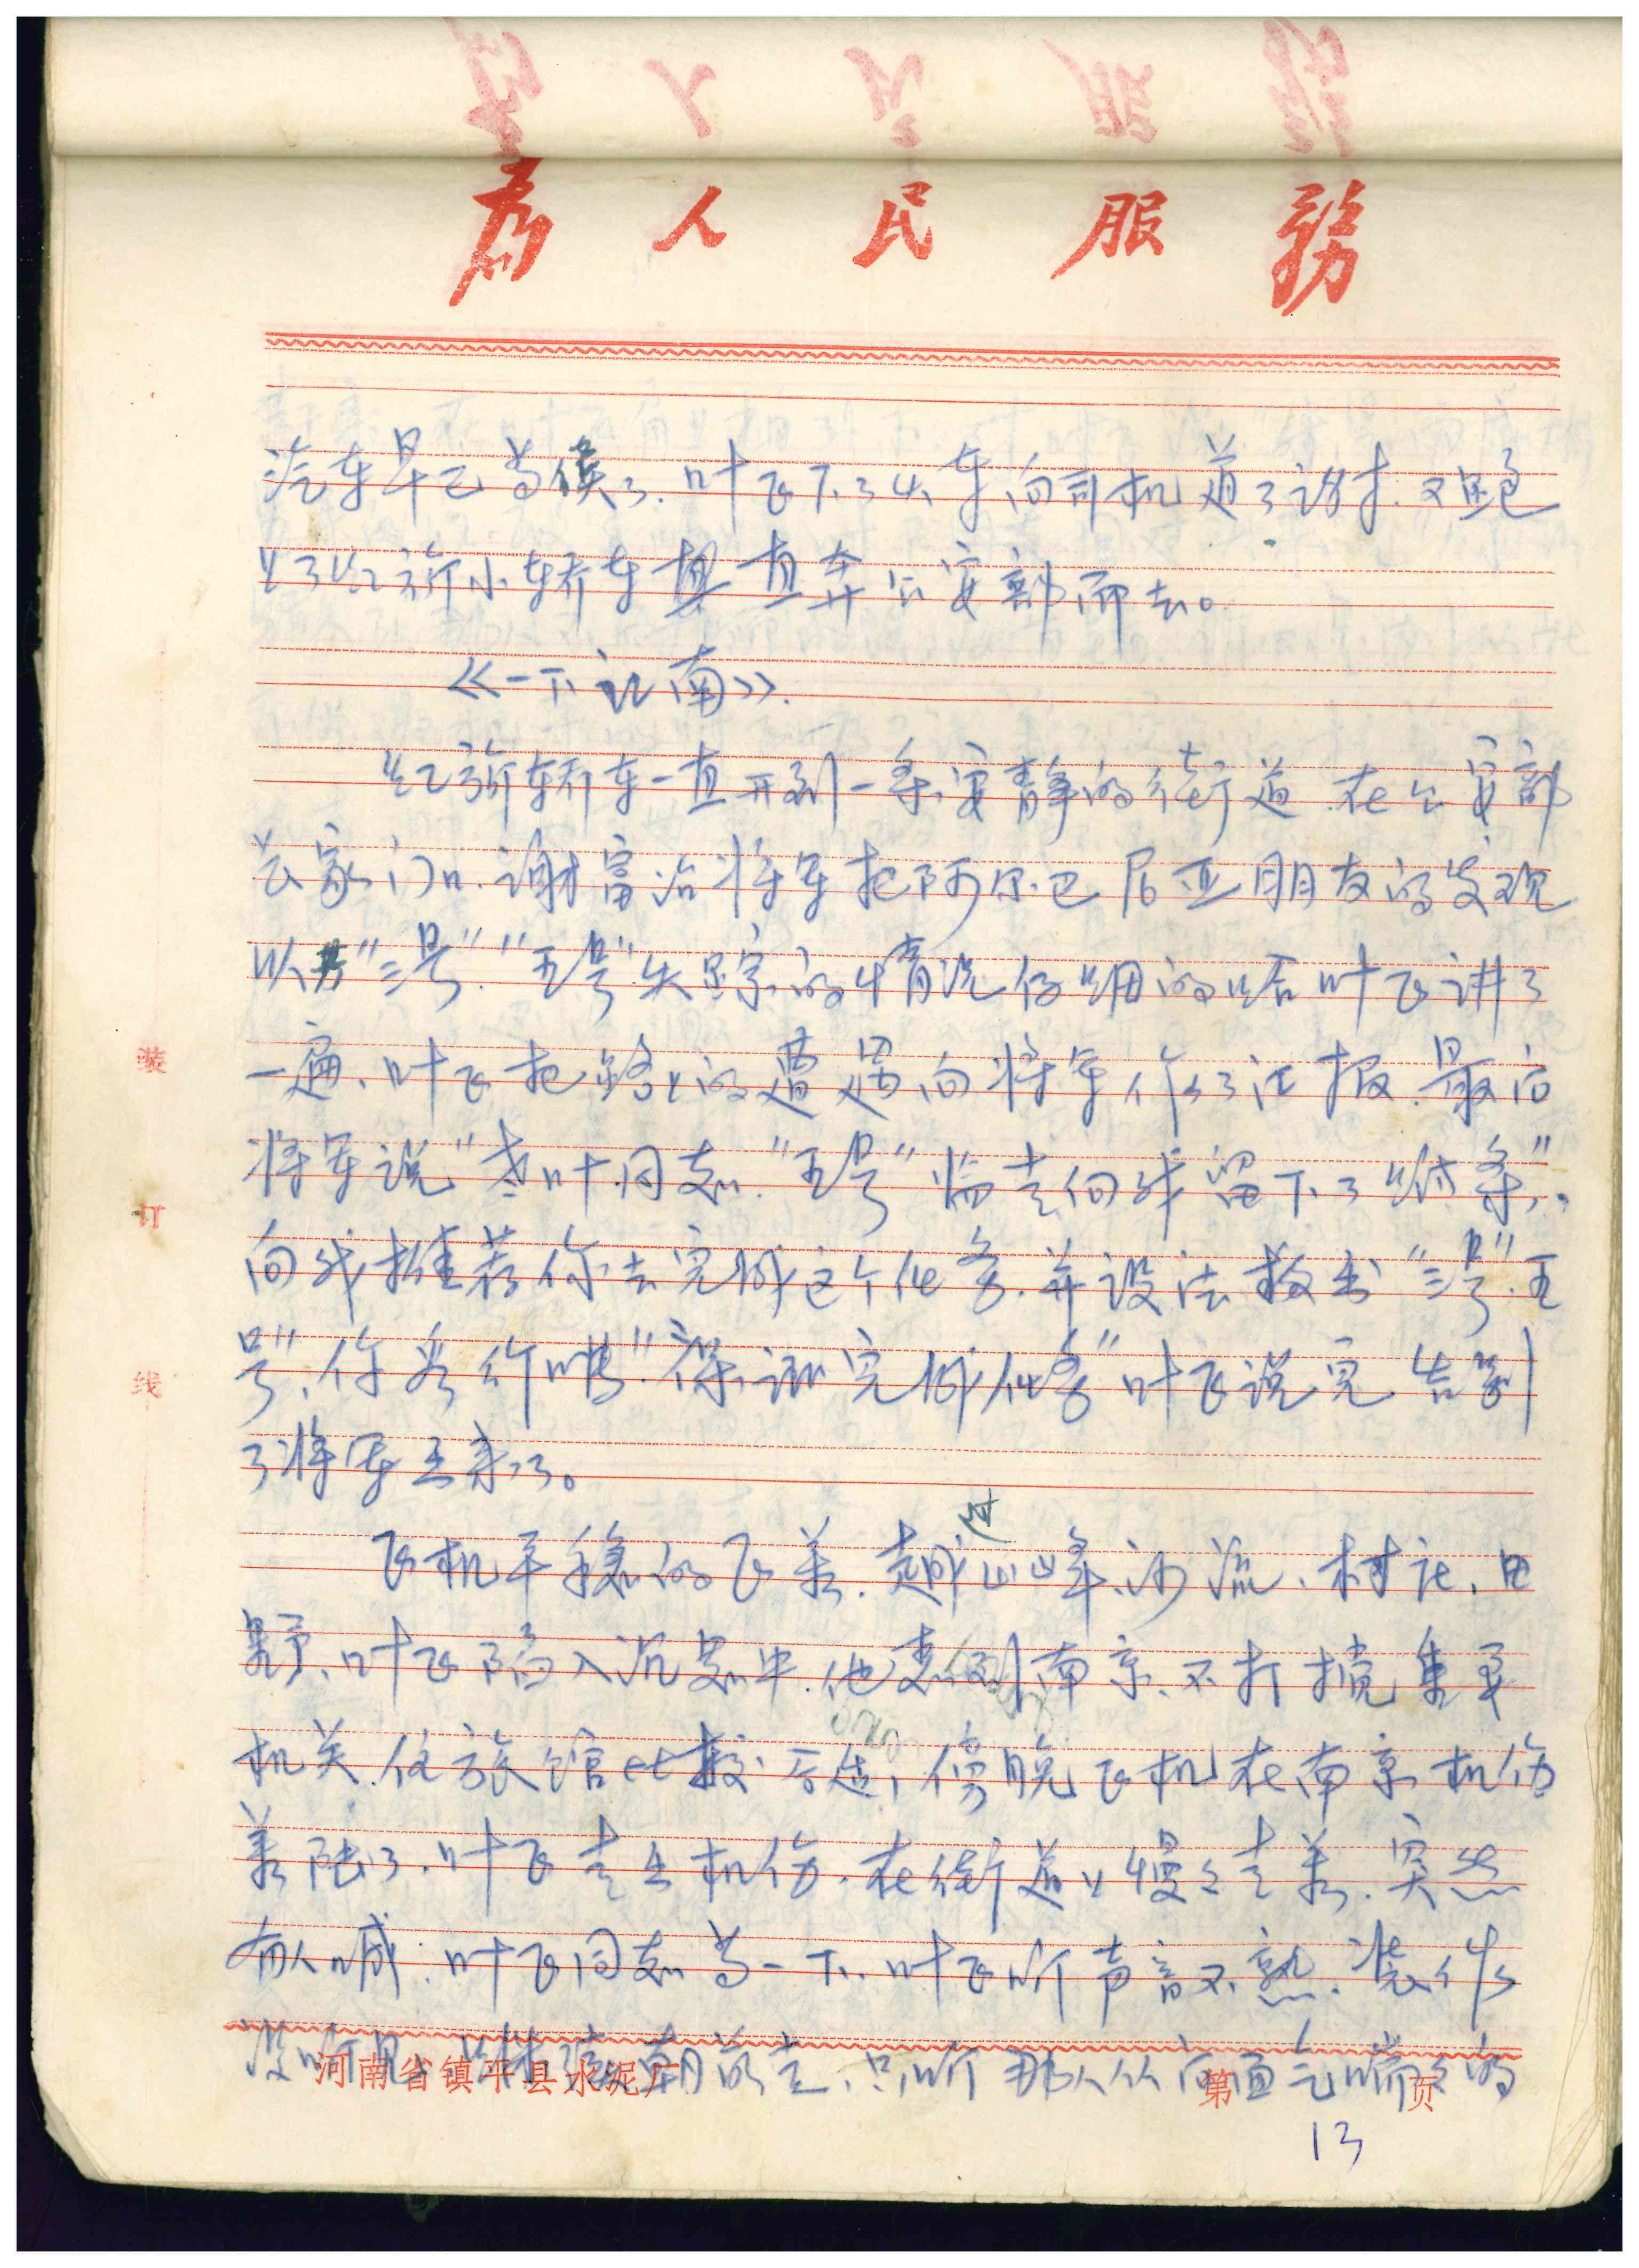 為人民服務
汽车早已等候了.叶飞下了小车向司机道了谢.又跑
上了红旗小轿车直奔公安部而去。
《一下江南》.
红旗轿车一直开到一条安静的街道.在公安部
长家门口.谢富治将军把阿尔巴尼亚朋友的发现
以及"三号"."五号"失踪的情况仔细的给叶飞讲了
一遍、叶飞把路上的遭遇向将军作了汇报.最后
将军说"老叶同志."五号"临走向我留下了附条",
向我推荐你去完成这个任务.并设法救出"三号".五
号",你看行嘛"."保证完成任务"叶飞说完告别
了将军出来了。
飞机平稳的飞着.越过山峰、沙流、村社、田
野、叶飞陷入沉思中.他想到南京、不打搅重要
机关.住旅馆比较合适,傍晚飞机在南京机场
着陆了.叶飞走出机场.在街道上慢々走着.突然
有人喊:叶飞同志等一下.叶飞听声音不熟.装作
没听见.朝前走、只听那人从后面气喘々的
装
订
线
河南省镇平县水泥厂
第 页
13